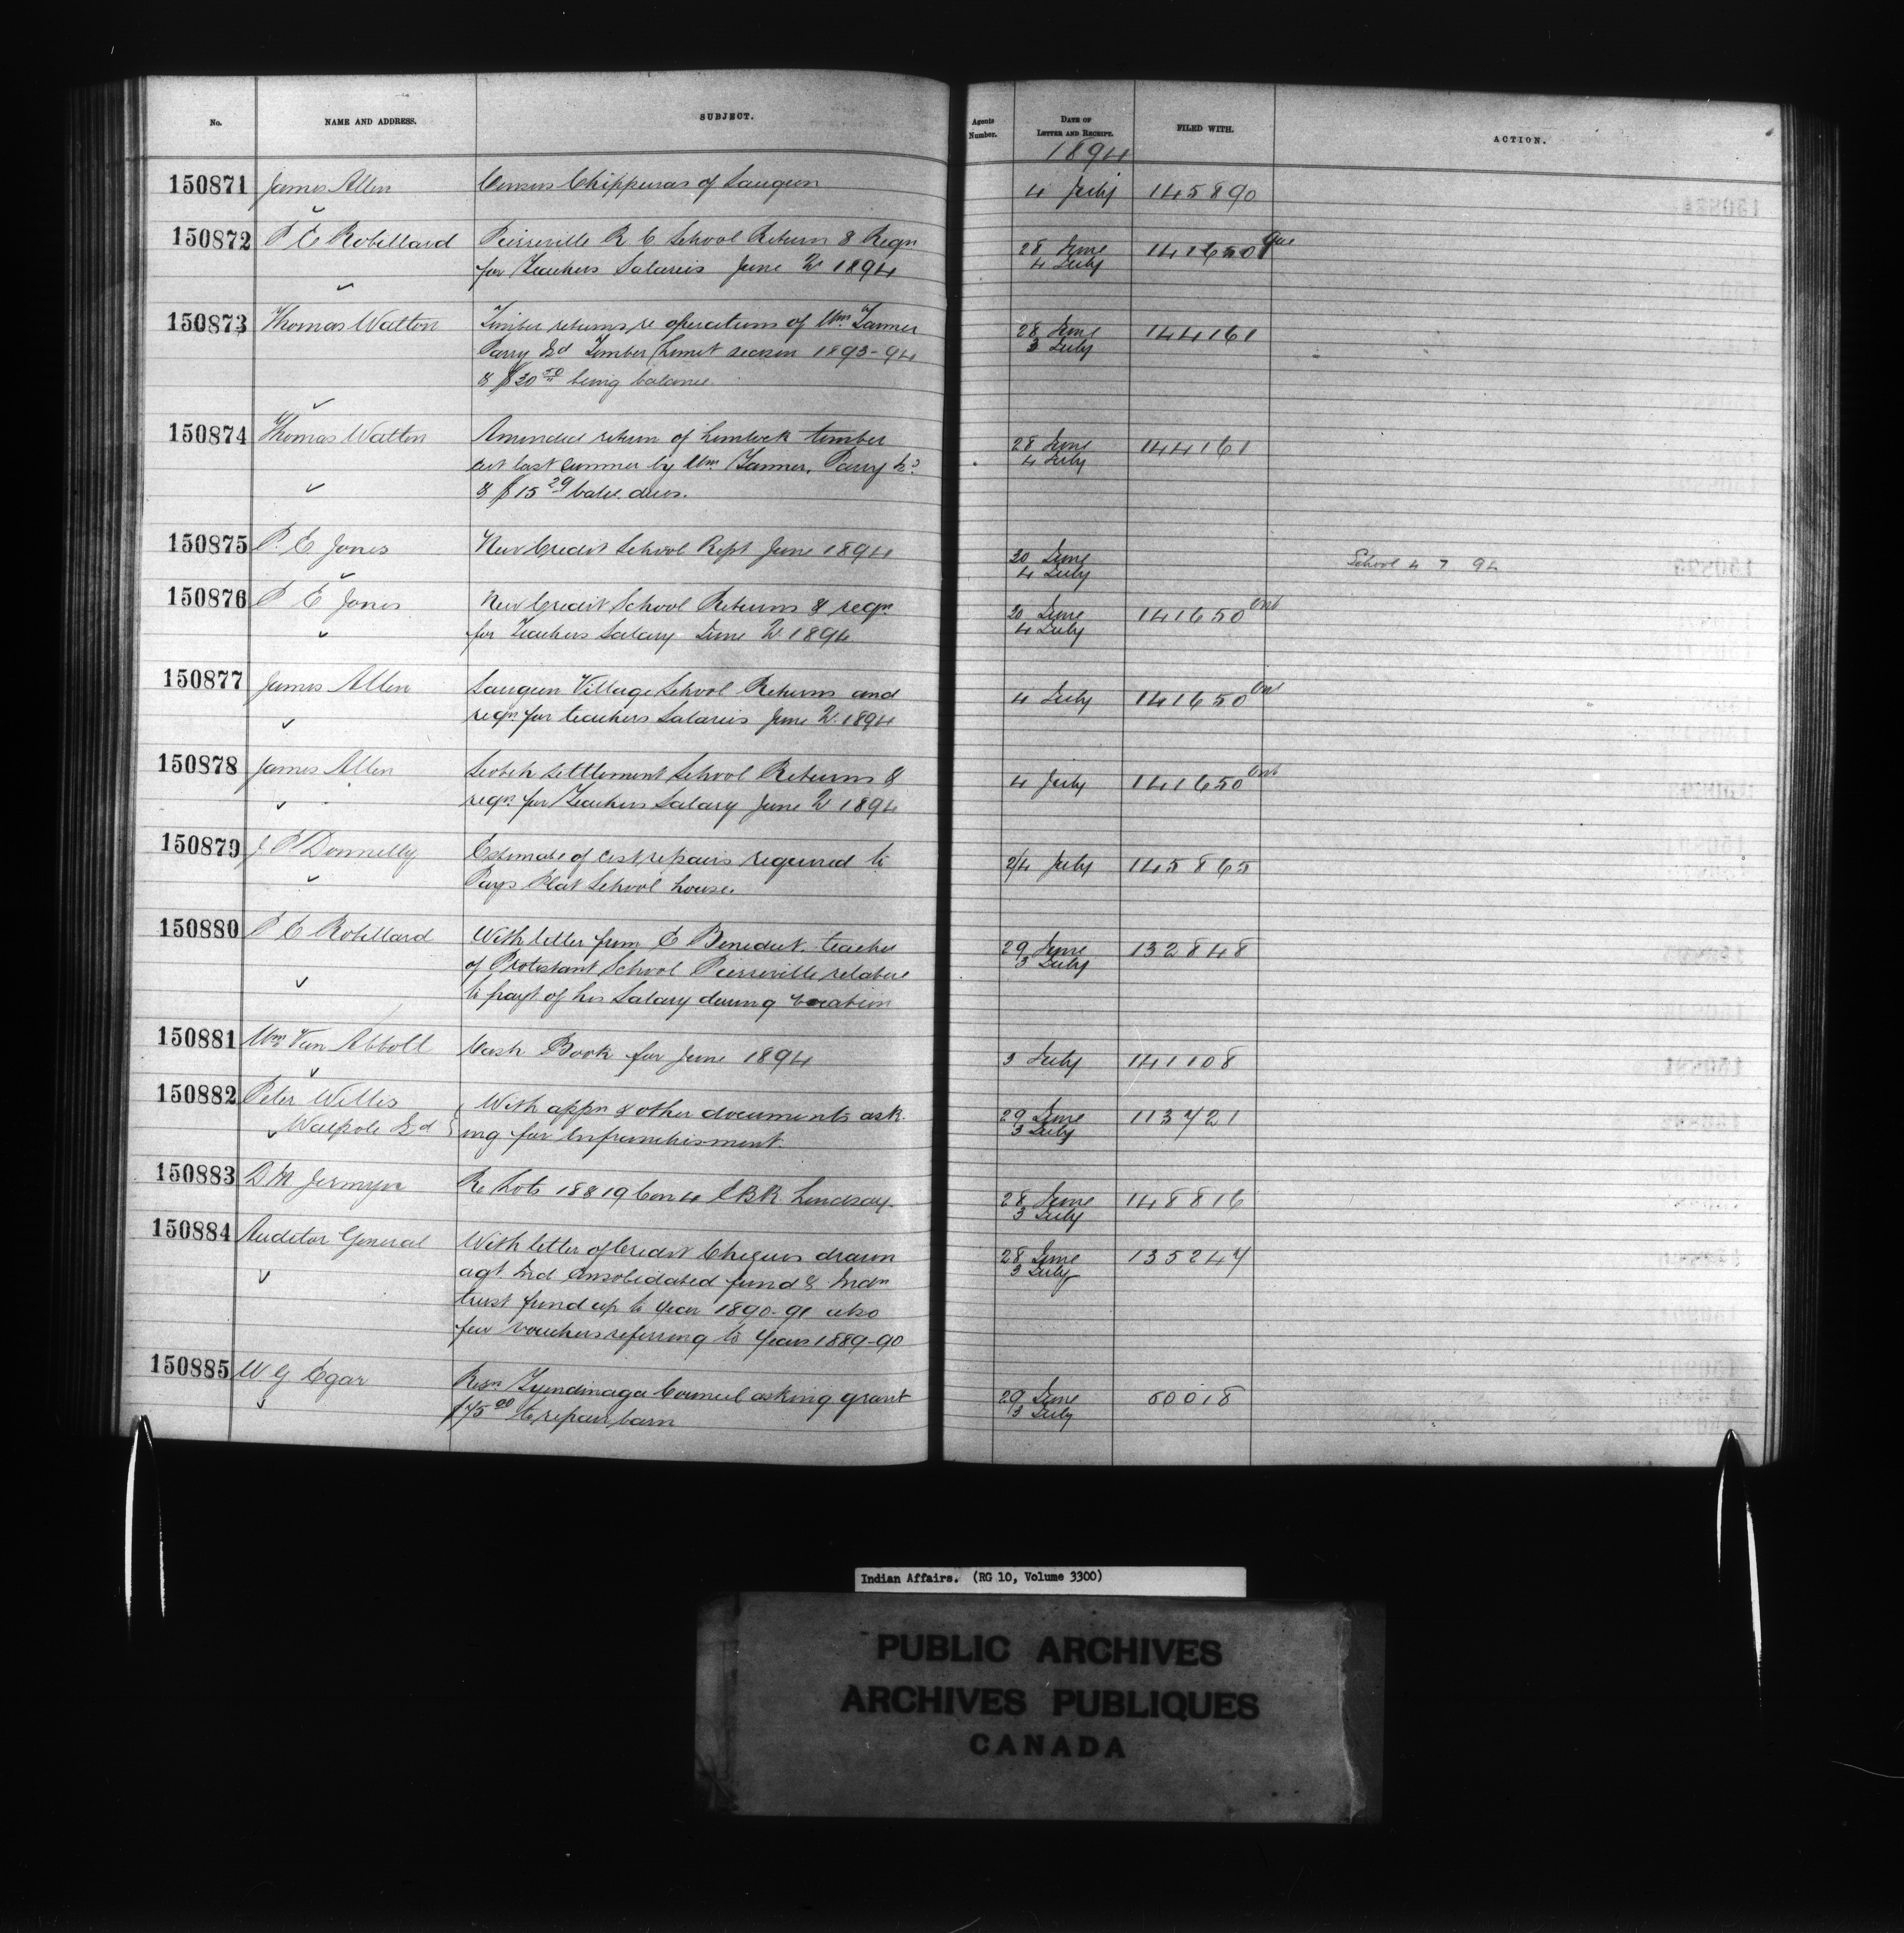 No. NAME AND ADDRESS. SUBJECT. Agents Number. DATE OF LETTER AND RECEIPT. FILED WITH. ACTION.
1894
150871 James Allen Census Chippewas of Saugeen 4 July 145890
150872 P E Robillard Pierreville R C School Return & Reqn 28 June 141650 Que
for Teachers Salaries June Qr 1894 4 July
150873 Thomas Walton Timber returns re operations of Wm Tanner 28 June 144161
Parry Isd Timber Limit season 1893-94 3 July
& $30 50 being balance
150874 Thomas Walton Amended return of hemlock timber 28 June 144161
cut last summer by Wm Tanner, Parry Is 4 July
& $15 29 bale. dues.
150875 P. E Jones New Credit School Rept June 1894 30 June School 4 7 94
4 July
150876 P E Jones New Credit School Returns & reqn 30 June 141650 Ont
for Teachers Salary June Qr 1894 4 July
150877 James Allen Saugeen Village School Returns and 4 July 141650 Ont
reqn for teachers Salaries June Qr 1894
150878 James Allen Scotch Settlement School Returns & 4 July 141650 Ont
reqn for Teachers Salary June Qr 1894
150879 J P Donnelly Estimate of cost repairs required to 2/4 July 145865
Pays Plat School house.
150880 P E Robillard With letter from E Benedict teacher 29 June 132848
of Protestant School Pierreville relative 3 July
to payt of his Salary during vacation
150881 Wm Van Abbott Cash Book for June 1894 3 July 141108
150882 Peter Willis With appn & other documents ask 29 June 113721
Walpole Isd ing for enfranchisment. 3 July
150883 D M Jermyn Re Lots 18 & 19 Con 4 E B R Lindsay. 28 June 148816
3 July
150884 Auditor General With letter of Credit Cheques drawn 28 June 135247
agt Ind Consolidated fund & Indn 3 July
trust fund up to year 1890-91 also
few vouchers referring to years 1889-90
150885 W G Egar Resn Tyendinaga Council asking grant 29 June 60018
$75 00 to repair barn 3 July
Indian Affairs. (RG 10, Volume 3300)
PUBLIC ARCHIVES
ARCHIVES PUBLIQUES
CANADA